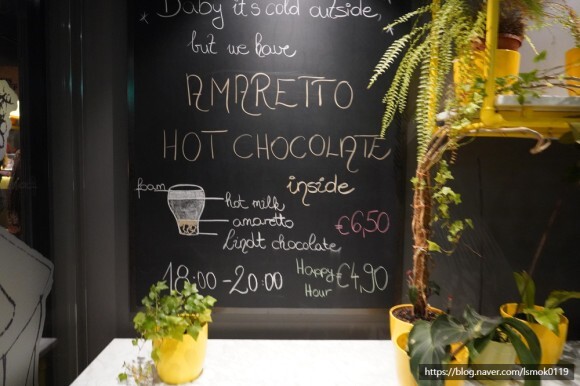 Baby it's cold outside,
but we have
AMARETTO
HOT CHOCOLATE
inside
foam
hot milk
amaretto
Lindt chocolate
€6,50
18:00-20:00 Happy Hour €4,90
https://blog.naver.com/lsmok0119